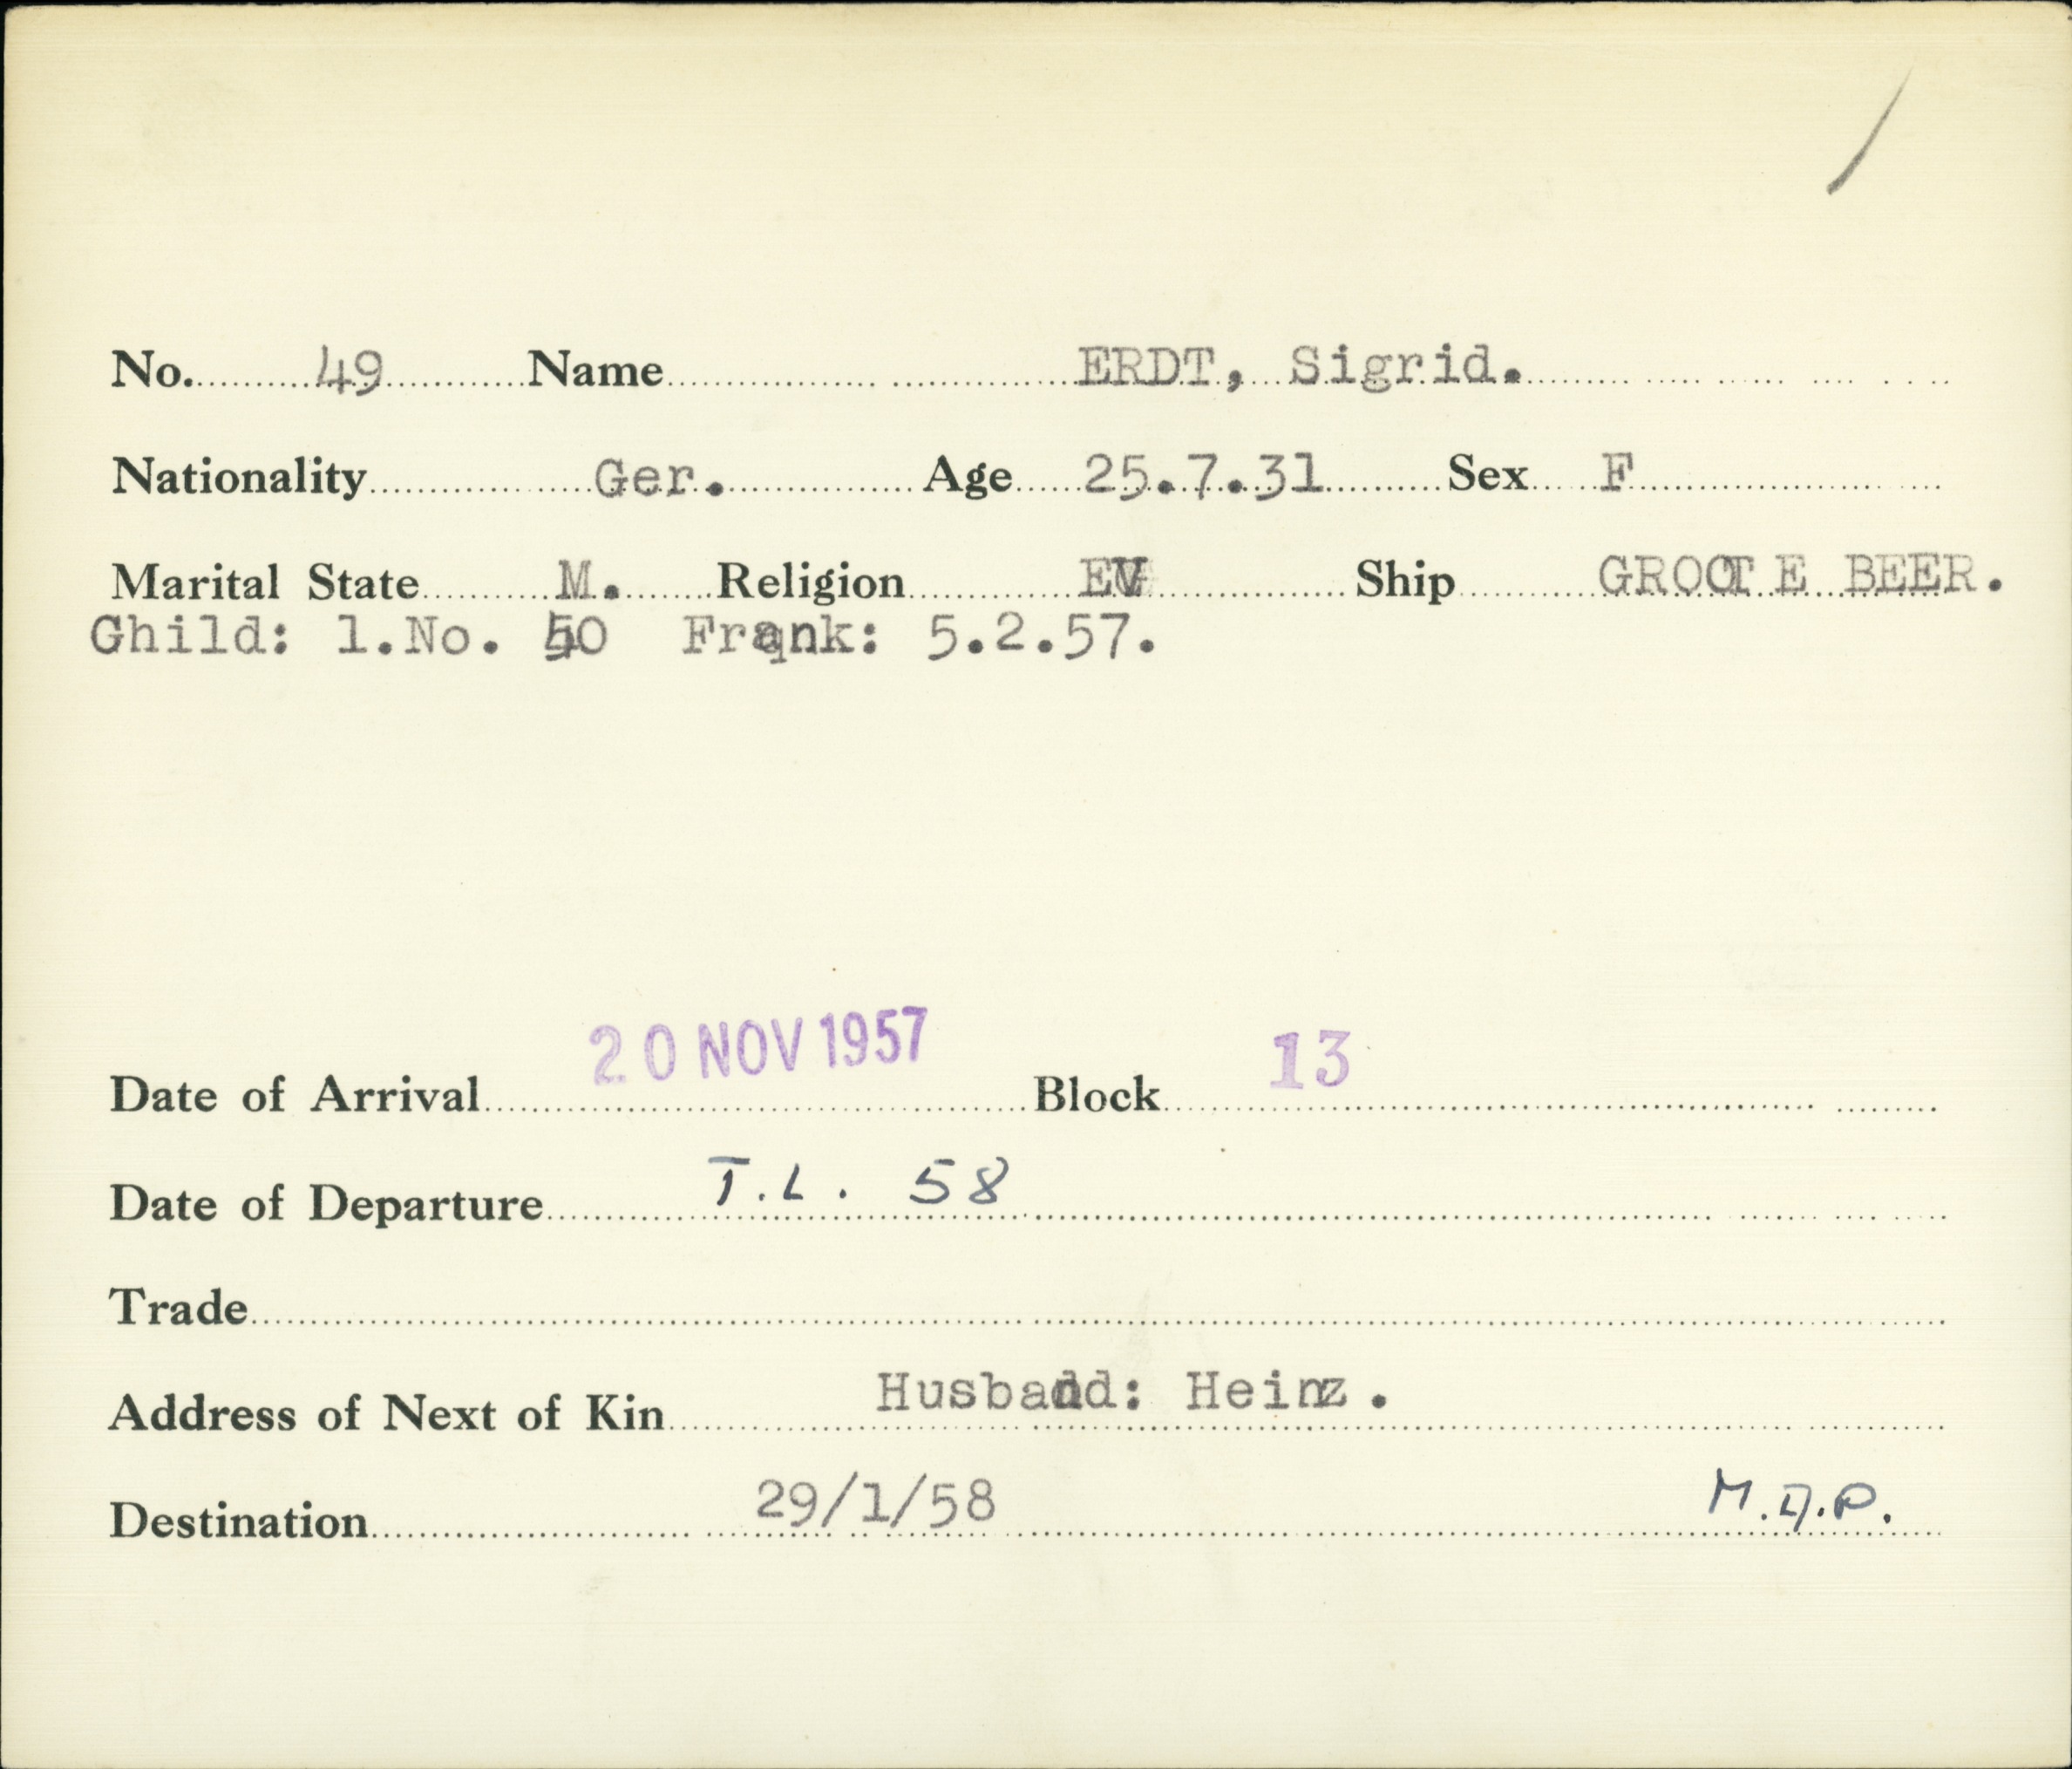 No. 49 Name ERDT, Sigrid.
Nationality Ger. Age 25.7.31 Sex F
Marital State M. Religion EV Ship GROOTE BEER.
Ghild: 1.No. 50 Frank: 5.2.57.
20 NOV 1957 13
Date of Arrival Block
Date of Departure T.L. 58
Trade
Address of Next of Kin Husband: Heinz.
Destination 29/1/58 M.A.P.